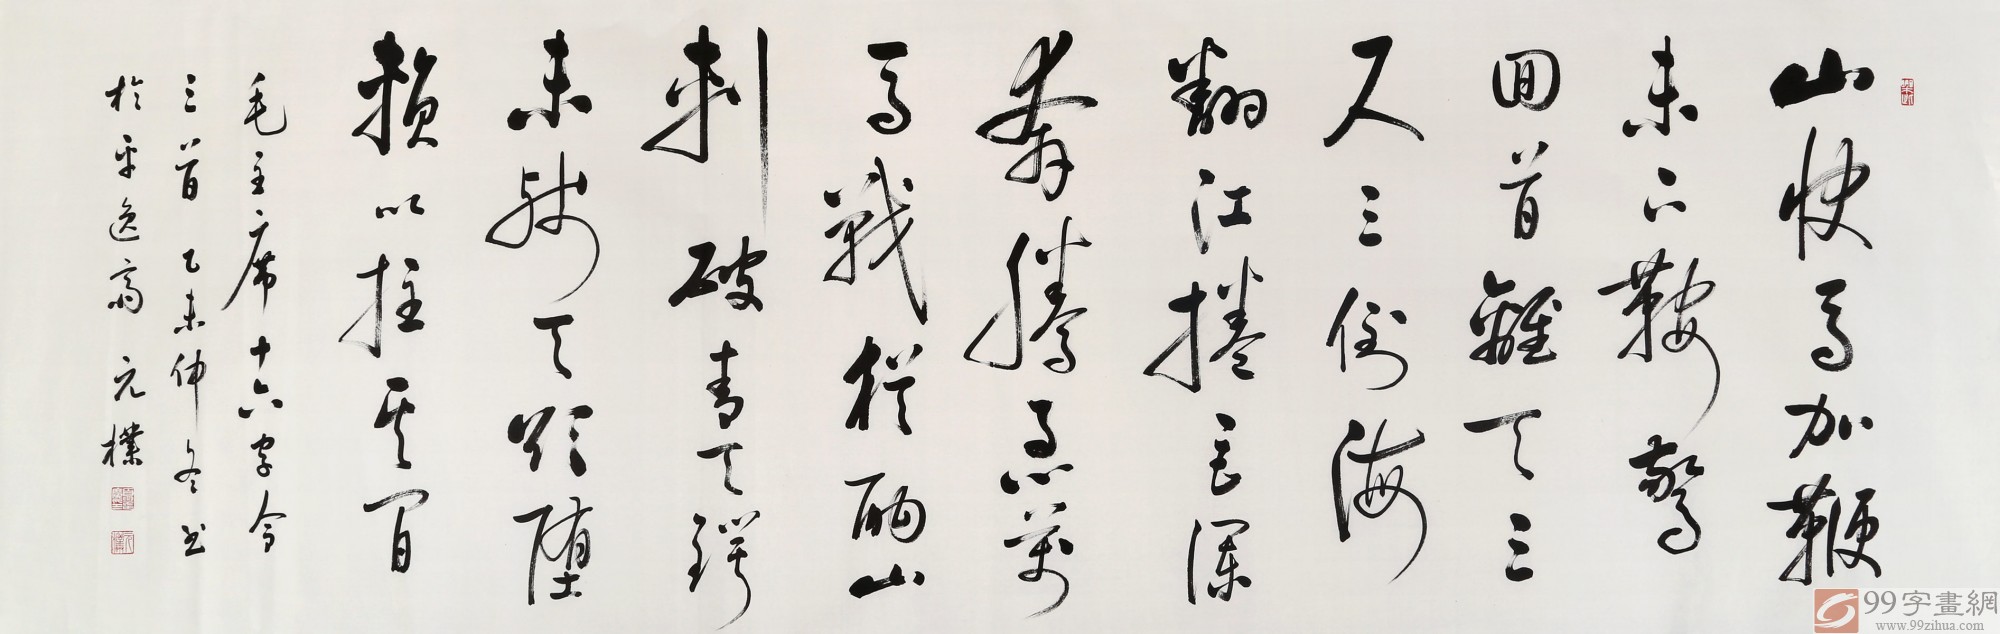 山快馬加鞭
未下鞍驚
回首離天三
尺三倒海
翻江捲巨瀾
奔騰急萬
馬戰猶酣山
刺破青天鍔
未殘天欲墮
賴以拄其間
毛主席十六字令
三首 乙未仲冬書
於平逸齋 元樸
99字畫網
www.99zihua.com